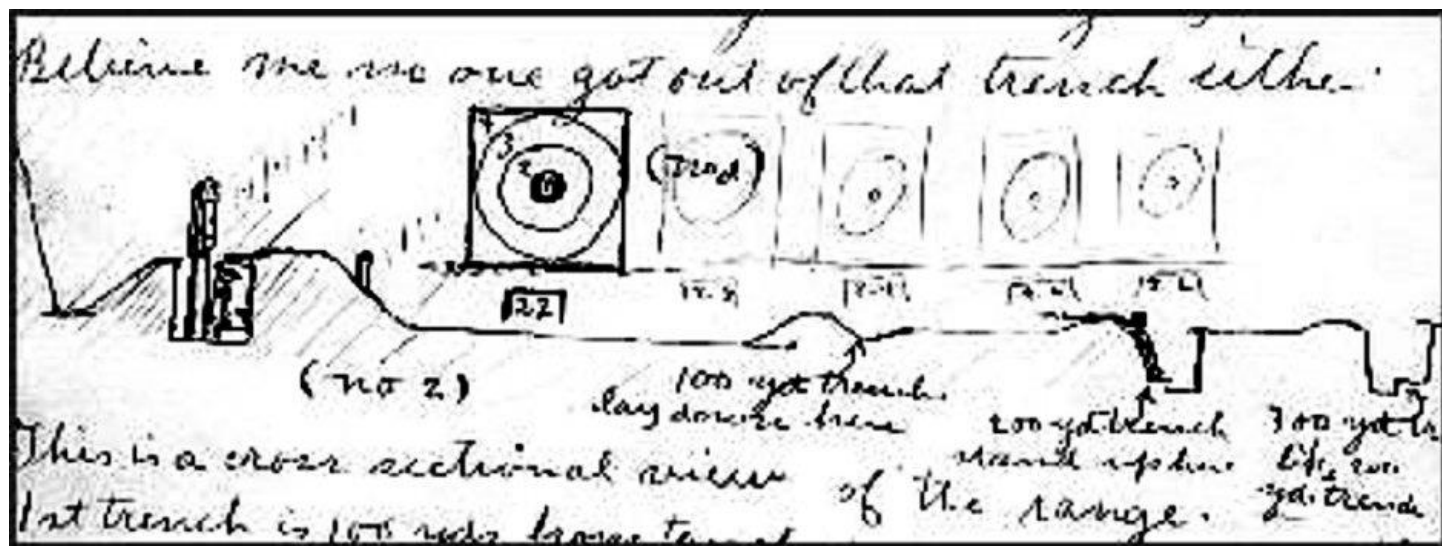 Believe me no one got out of that trench either
4
3
2
22
(no 2)
100 yd trench
lay down here
200 yd trench
stand up here
300 yd tr
like 200
yd. trench
This is a cross sectional view of the range.
1st trench is 100 yds from